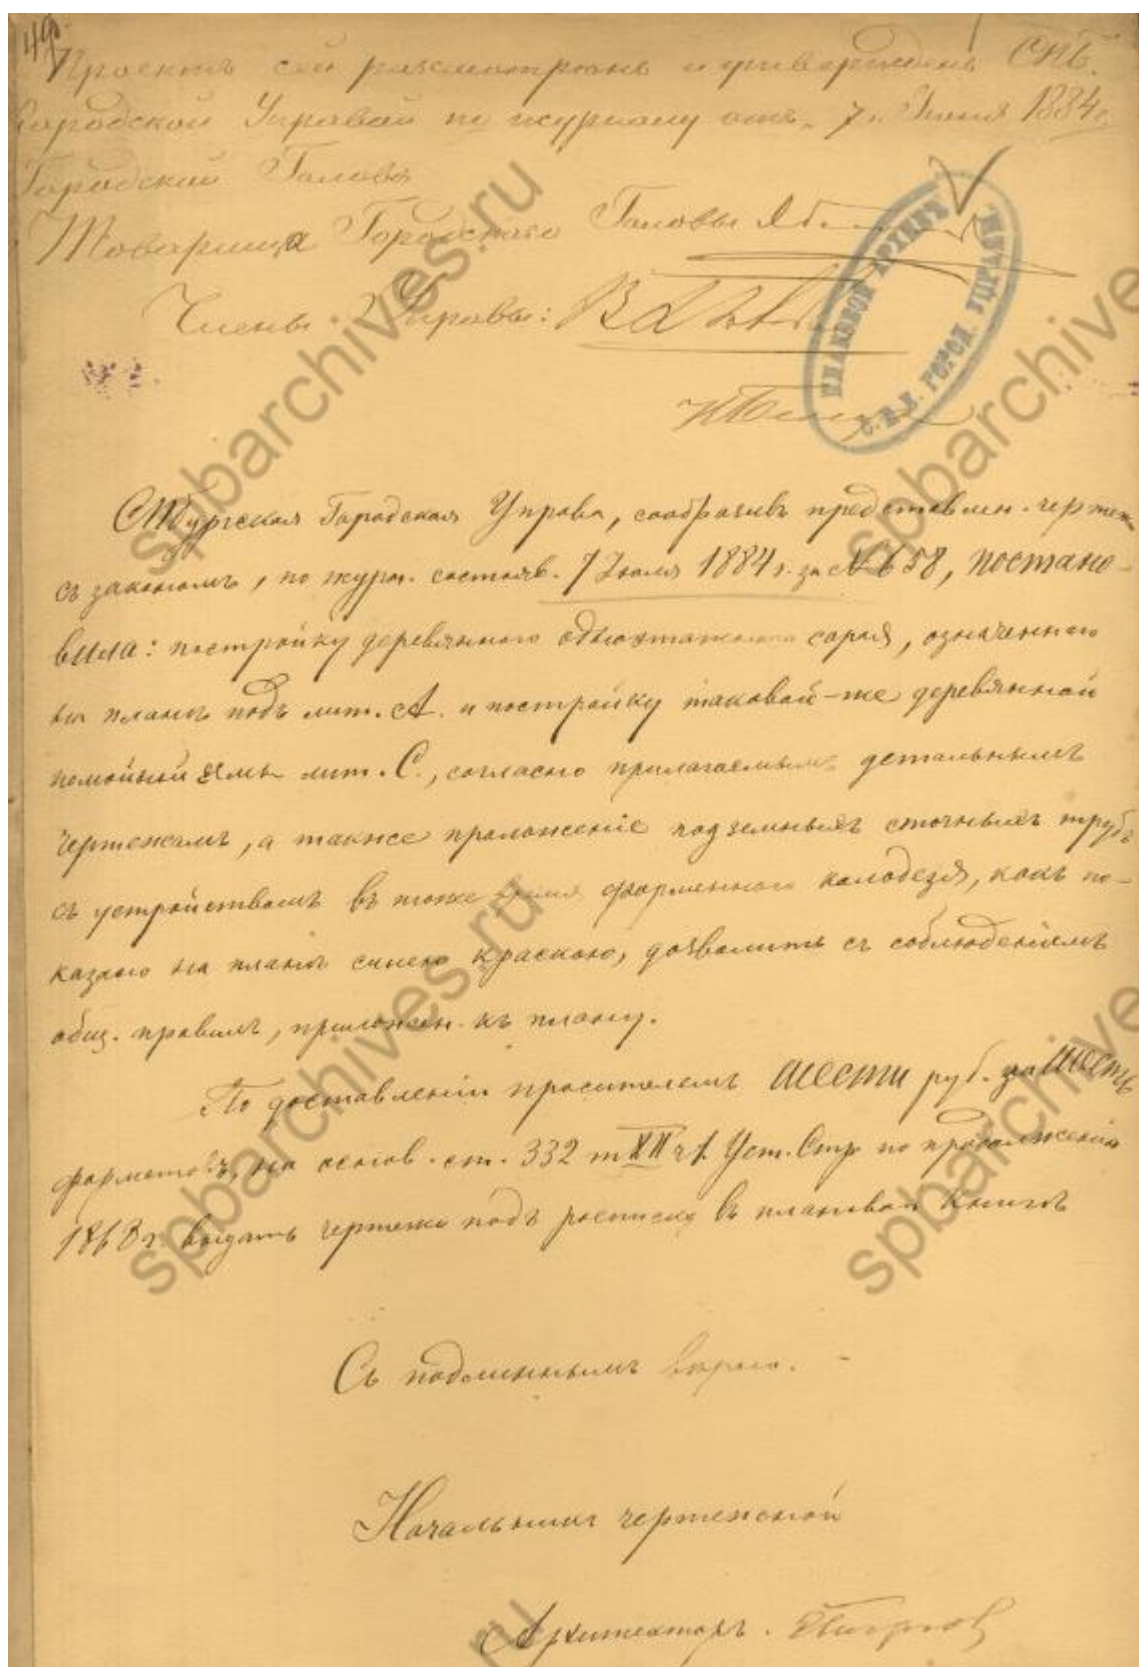 49
Проектъ сей разсмотренъ и утвержденъ СПБ.
Городской Управой по журналу отъ 7 1884 г.
Городской Голова
Товарища Городскаго Головы
Члены Управы:
ПЛАНОВОЙ АРХИВЪ
С.П.Б. ГОРОД. УПРАВЫ
СПбургская Городская Управа, сообразивъ представлен. чертеж
съ закономъ, по журн. состояв. 7 Іюля 1884 г. за № 658, постано-
вила: постройку деревяннаго одноэтажнаго сарая, означеннаго
на планѣ подъ лит. А. и постройку таковой-же деревянной
помойной ямы лит. С., согласно прилагаемымъ детальнымъ
чертежамъ, а также проложеніе подземныхъ сточныхъ трубъ
съ устройствомъ въ тоже время форменнаго колодезя, какъ по-
казано на планѣ синею краскою, дозволить съ соблюденіемъ
общ. правилъ, приложен. къ плану.
По доставленіи просителемъ шести руб. за шесть
форматовъ, на основ. ст. 332 т XII ч 1. Уст. Стр по продолженію
1863 г выдать чертежи подъ росписку въ плановой книгѣ
Съ подлиннымъ вѣрно.
Начальникъ чертежной
Архитекторъ.
spbarchives.ru
spbarchives.ru
spbarchives.ru